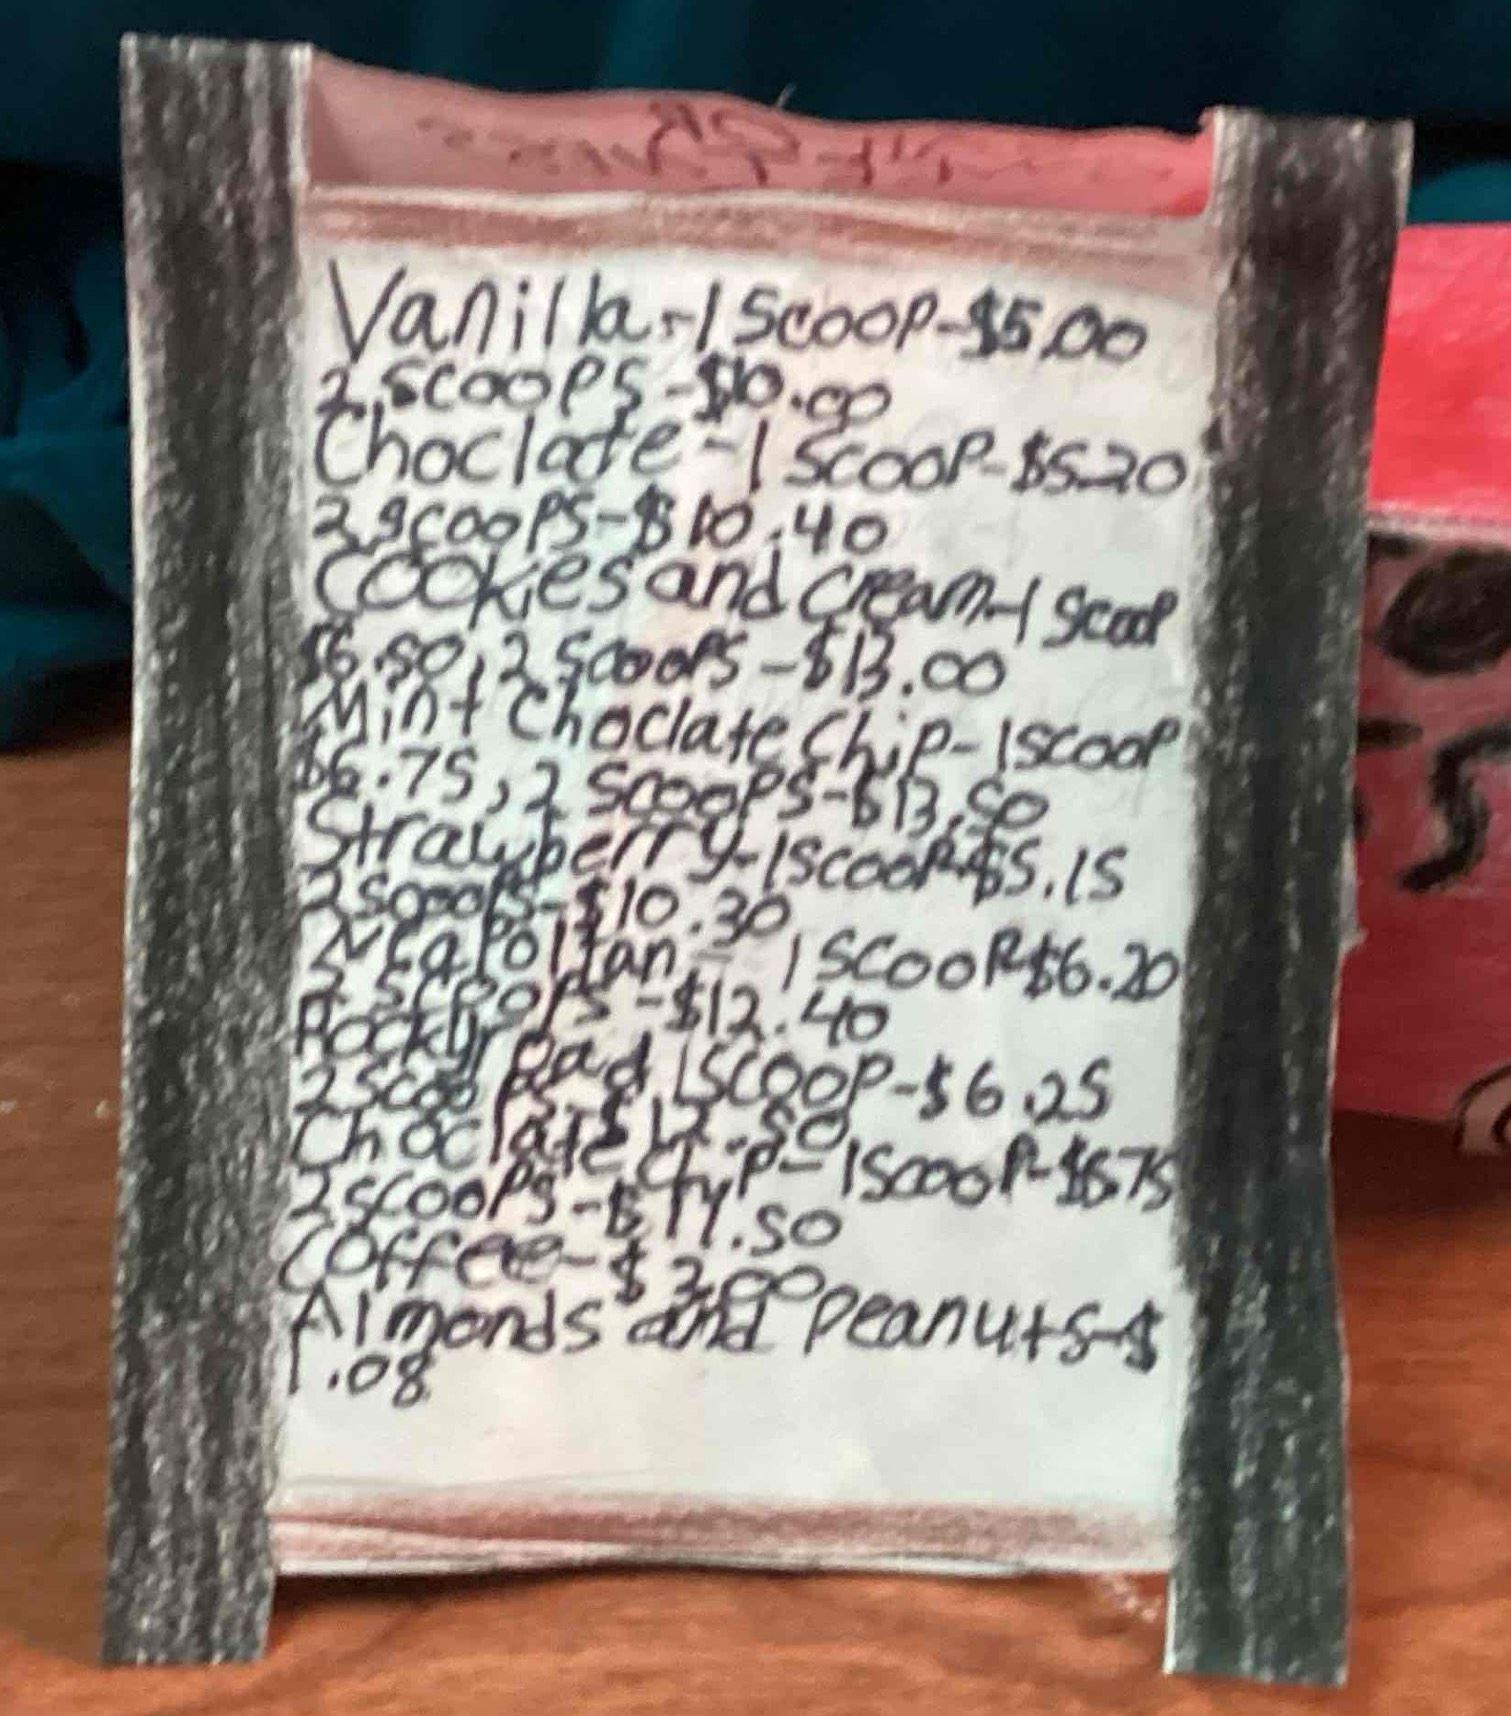 Vanilla-1 Scoop-$5.00
2 scoops-$10.00
Choclate-1 Scoop-$5.20
2 scoops-$10.40
Cookies and Cream-1 Scoop
$6.50, 2 Scoops-$13.00
Mint Choclate Chip-1 Scoop
$6.75, 2 Scoops-$13.50
Strawberry-1 scoop-$5.15
2 scoops-$10.30
1 Scoop-$6.20
2 scoops-$12.40
Rocky Road 1 Scoop-$6.25
$12.50
Choclate Chip-1 Scoop-
2 scoops-$11.50
Coffee-$2.00
Almonds and Peanuts-$
1.08